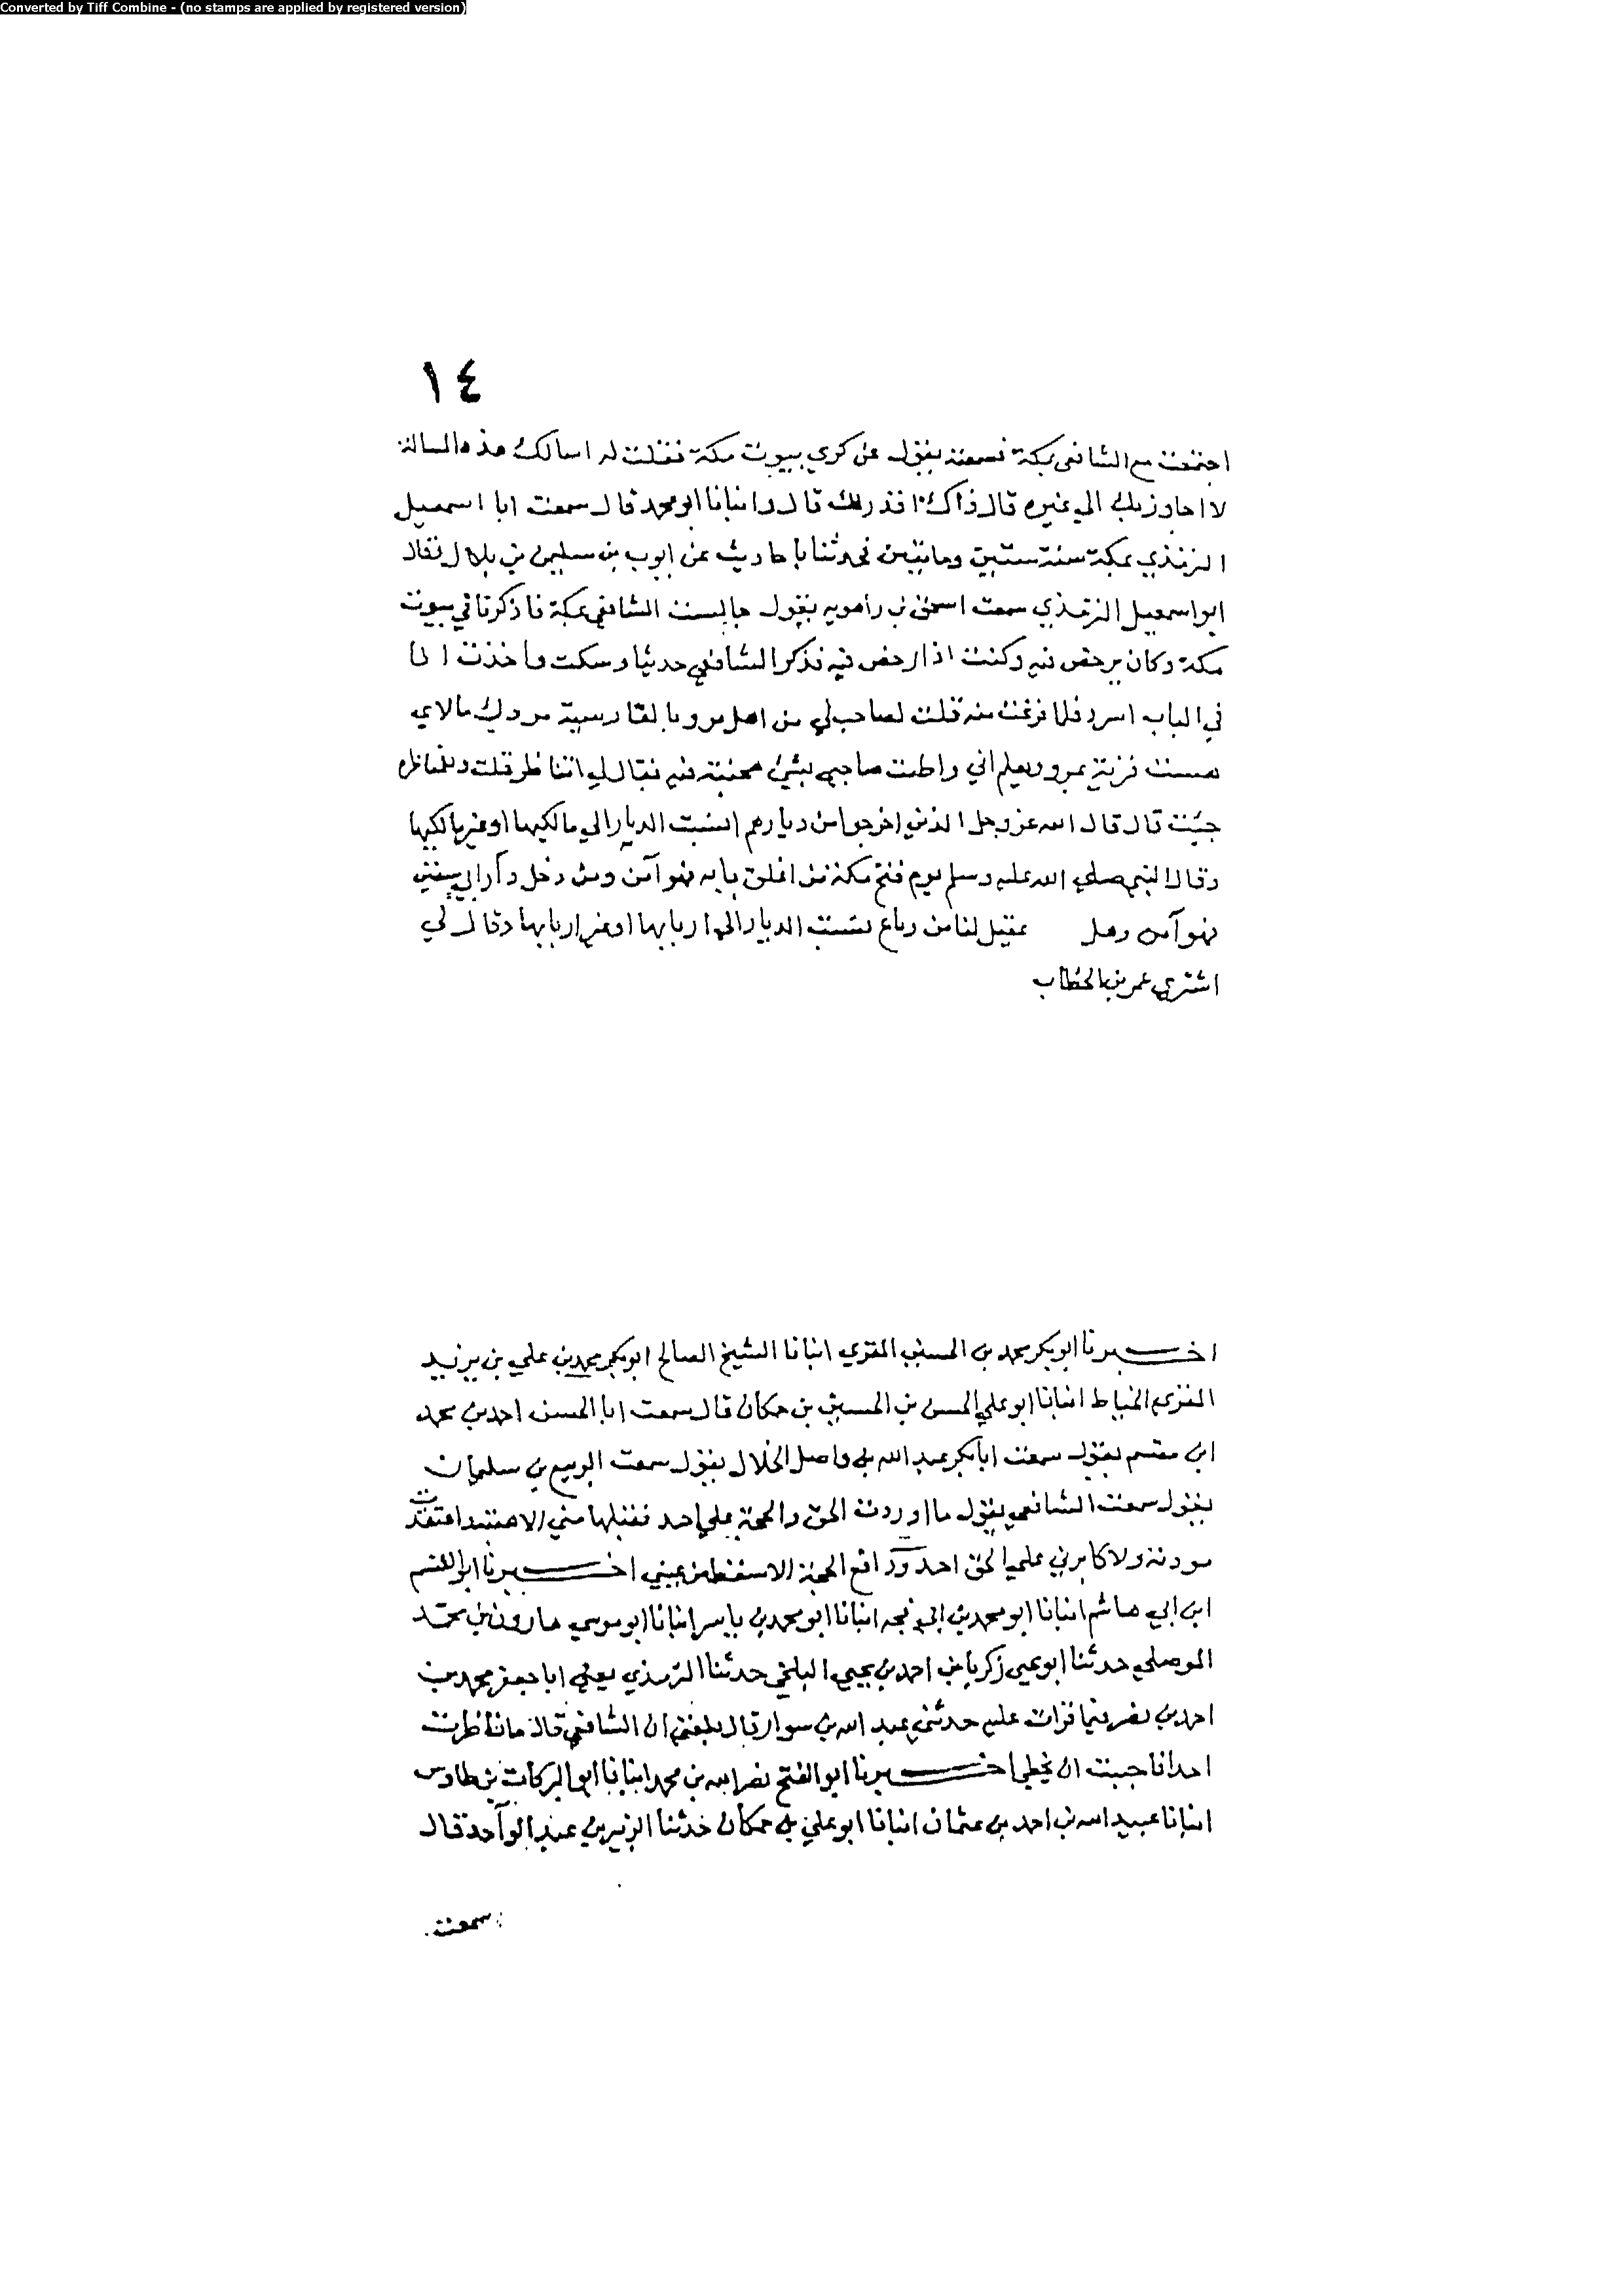 Converted by Tiff Combine - (no stamps are applied by registered version)
١٤
اجتمعت مع الشافعي بمكة فسمعته يقول عن كري بيوت مكة فقلت له اسالك هذه المسالة
لا اجاوز بك الى غيره قال ذاك اقدر لك قال وانبانا ابو محمد قال سمعت ابا اسمعيل
الترمذي بمكة سنة ستين ومايتين فحدثنا باحاديث عن ايوب بن سليمن بن بلال فقال
ابو اسمعيل الترمذي سمعت اسحق بن راهويه يقول جالست الشافعي بمكة فاذكرنا في بيوت
مكة وكان يرخص فيه وكنت اذا ارخص فيه فذكر الشافعي حديثا وسكت واخذت انا
في الباب اسرد فلما فرغت منه قلت لصاحب لي من اهل مرو بالفارسية مردك مالاي
هست قرية بمرو فعلم اني راطنت صاحبي بشئ هجنته فيه فقال لي اتناظر قلت وللمناظرة
جيت قال قال الله عز وجل الذين اخرجوا من ديارهم انسبت الديار الى مالكيها او غير مالكيها
وقال النبي صلى الله عليه وسلم يوم فتح مكة من اغلق بابه فهو آمن ومن دخل دار ابي سفين
فهو آمن وهل عقيل لنا من رباع نسبت الديار الى اربابها او غير اربابها وقال لي
اشترى عمر بن الخطاب
اخبرنا ابو بكر محمد بن الحسين المقري انبانا الشيخ الصالح ابو بكر محمد بن علي بن يزيد
المقري الخياط انبانا ابو علي الحسن بن الحسين بن حمكان قال سمعت ابا الحسن احمد بن محمد
ابن مقسم يقول سمعت ابا بكر عبد الله بن واصل الخلال يقول سمعت الربيع بن سليمان
يقول سمعت الشافعي يقول ما اوردت الحق والحجة على احد فقبلها مني الا هبته واعتقدت
مودته ولا كابرني على الحق احد ودافع الحجة الا سقط من عيني اخبرنا ابو القسم
ابن ابي هاشم انبانا ابو محمد بن انبانا ابو محمد بن ياسر انبانا ابو موسى هارون بن محمد
الموصلي حدثنا ابو يحيى زكريا بن احمد بن يحيى البلخي حدثنا الترمذي يعني ابا جعفر محمد بن
احمد بن نصر فيما قرات عليه حدثني عبد الله بن سوار قال بلغني ان الشافعي قال ما ناظرت
احدا فاحببت ان يخطي اخبرنا ابو الفتح نصر الله بن محمد انبانا ابو البركات بن طاوس
انبانا عبيد الله بن احمد بن عثمان انبانا ابو علي بن حمكان حدثنا الزبير بن عبد الواحد قال
سمعت